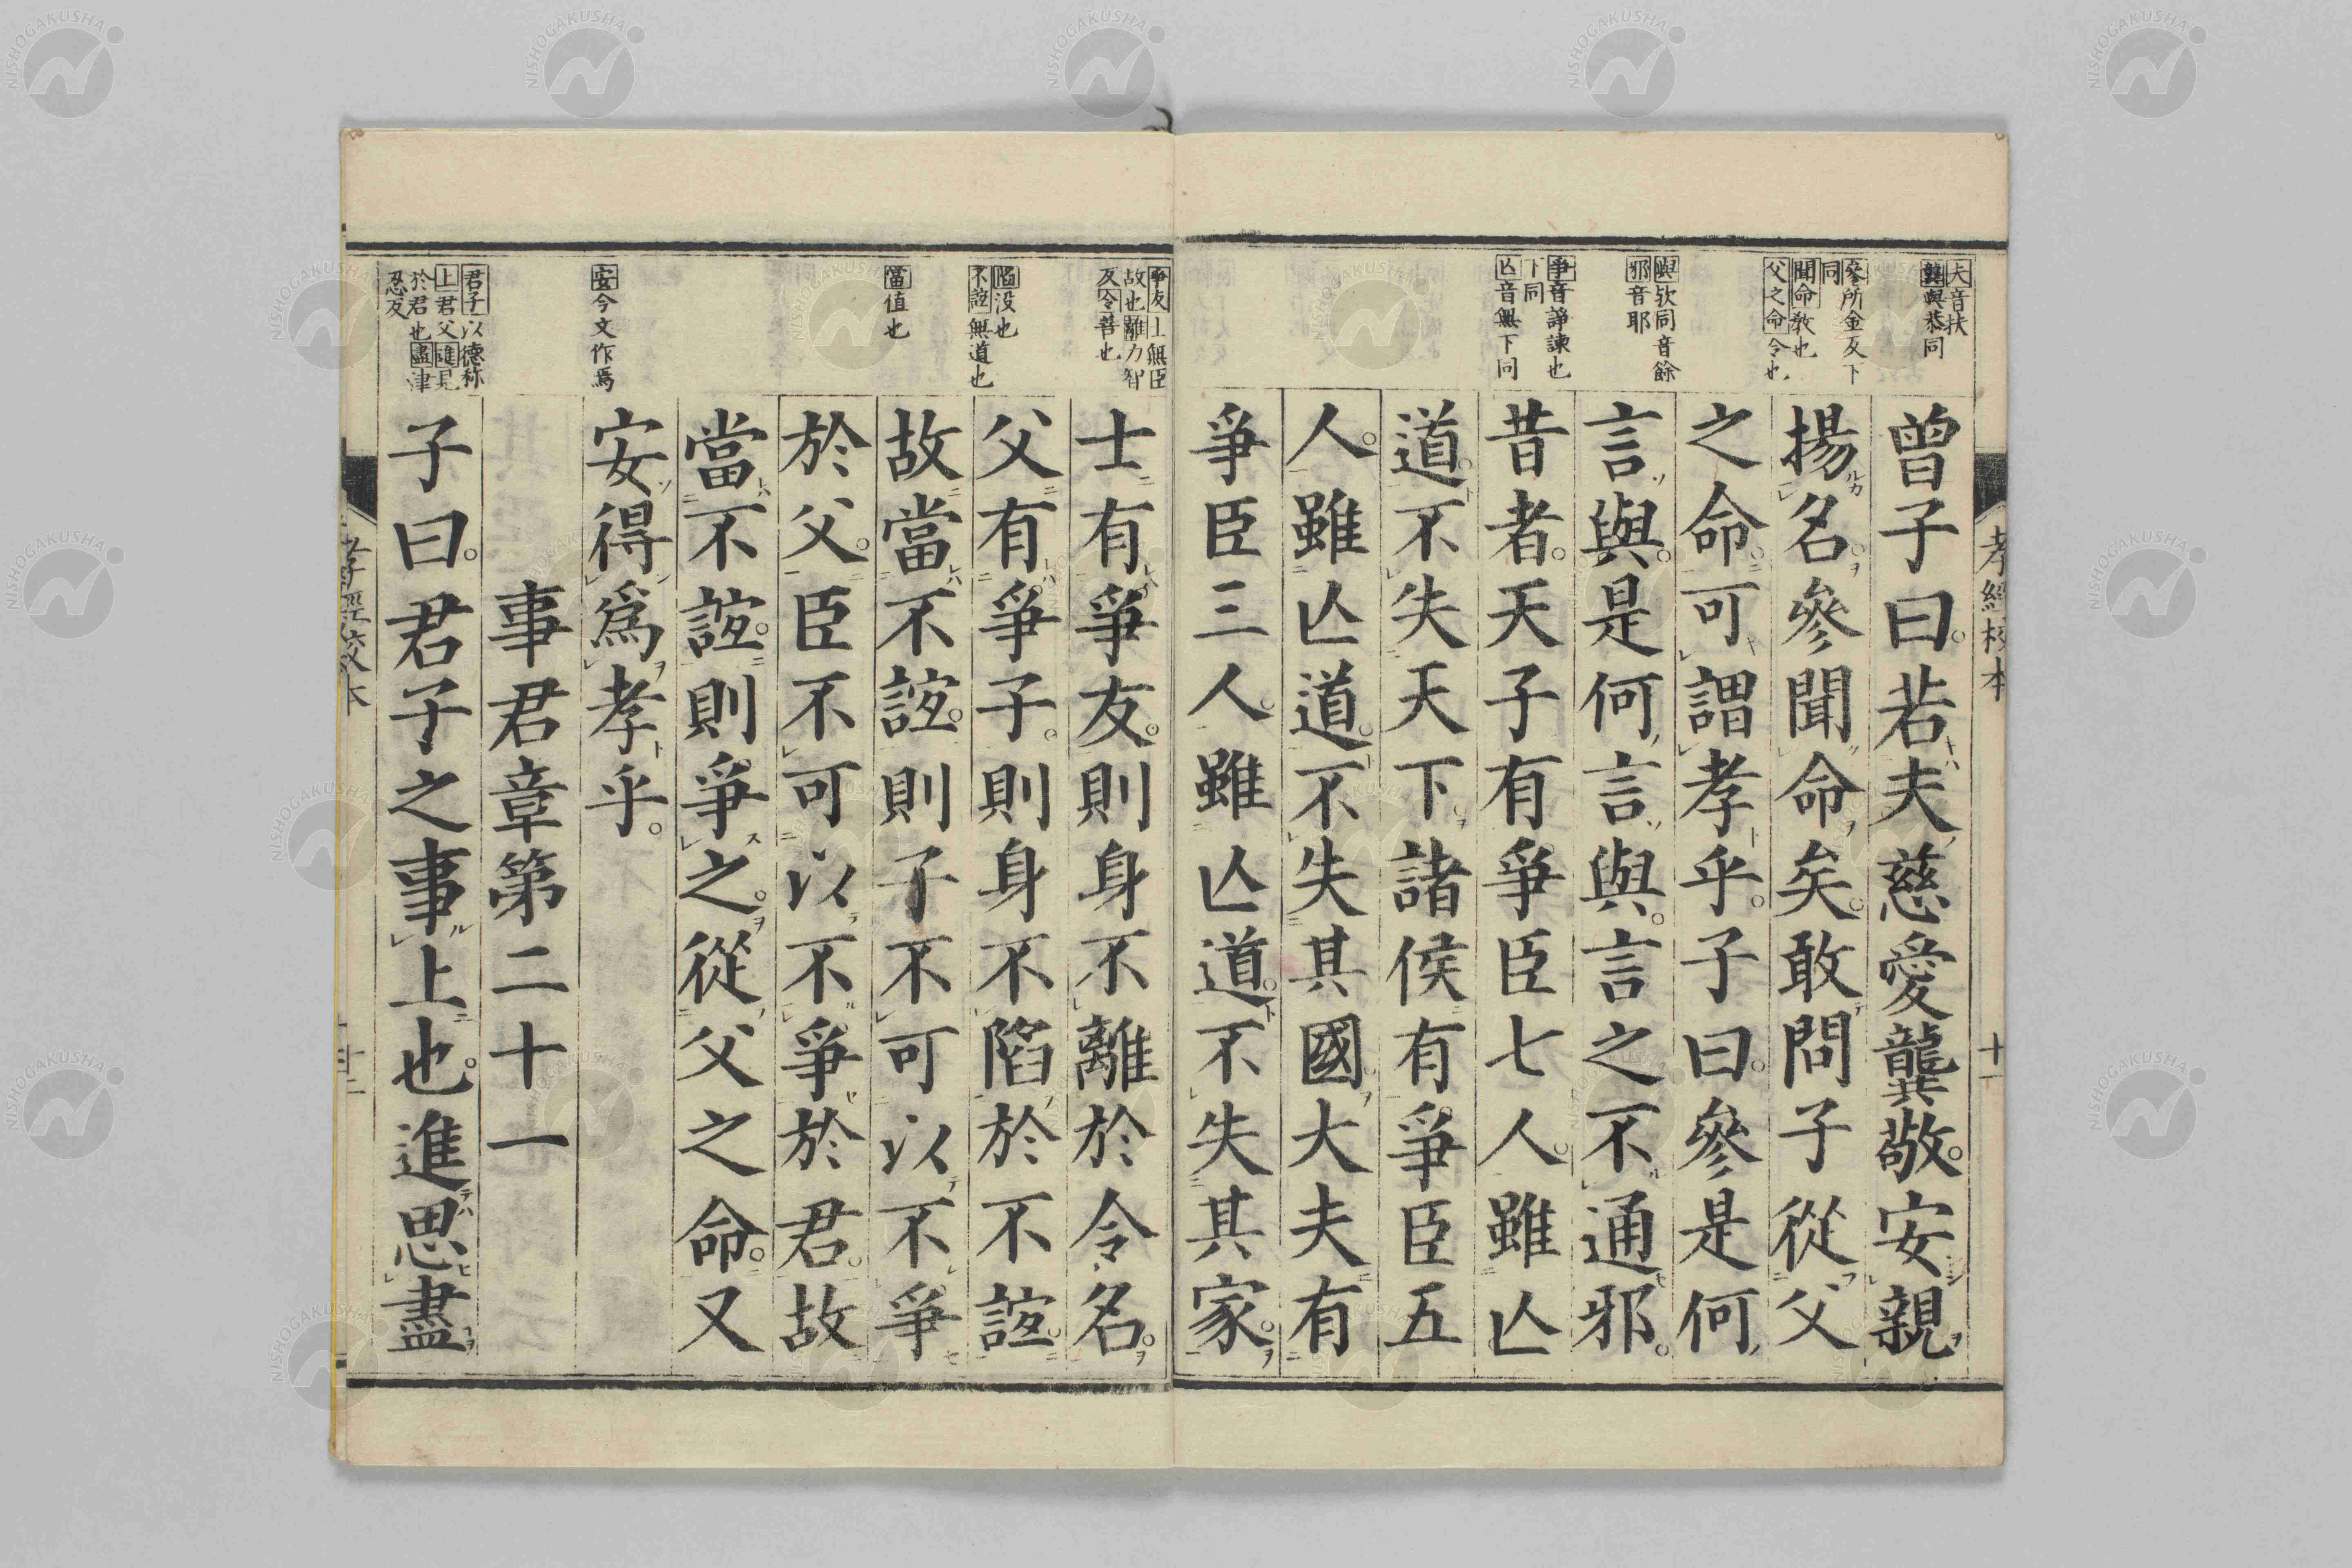 夫音扶
龔與恭同
參所金反下
同
聞命教也
父之命令也
與欤同音餘
邪音耶
爭音諍諫也
下同
亾音無下同
孝經校本
十一
曾子曰。若夫慈愛龔敬。安親
揚名。參聞命矣。敢問子從父
之命。可謂孝乎。子曰。參是何
言與。是何言與。言之不通邪。
昔者。天子有爭臣七人。雖亾
道。不失天下。諸侯有爭臣五
人。雖亾道。不失其國。大夫有
爭臣三人。雖亾道。不失其家。
爭友上無臣
故也離力智
反令善也
陷没也
不誼無道也
當值也
安今文作焉
君子以德称
上君父雖見
於君也盡津
忍反
士有爭友。則身不離於令名。
父有爭子。則身不陷於不誼。
故當不誼。則子不可以不爭
於父。臣不可以不爭於君。故
當不誼。則爭之。從父之命。又
安得爲孝乎。
事君章第二十一
子曰。君子之事上也。進思盡
孝經校本
NISHOGAKUSHA